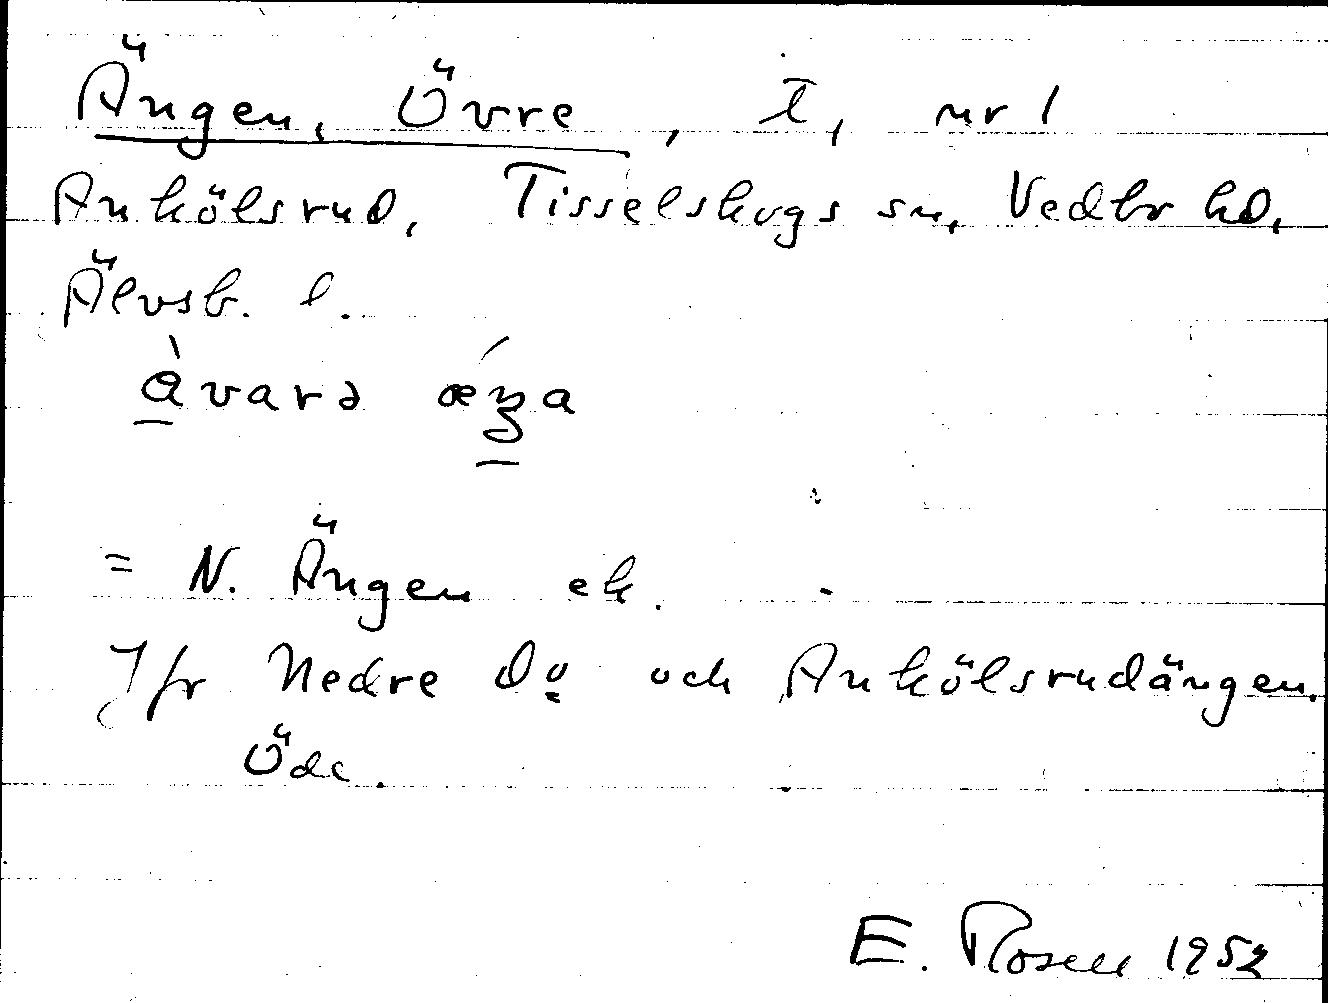 Ängen, Övre, T, nr 1
Ankölsrud, Tisselskogs sn, Vedbr hd,
Älvsb. l.
àvarə
= N. Ängen ek.
Jfr Nedre Do och Ankölsrudängen.
Öde.
E. Rosell 1952